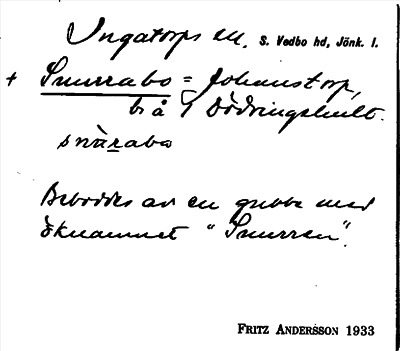 Ingatorps sn. S. Vedbo hd, Jönk. l.
+ Snurrabo = Johanstorp,
b. å Dödringshult.
snùrabo
Beboddes av en gubbe med
öknamnet "Snurren".
FRITZ ANDERSSON 1933